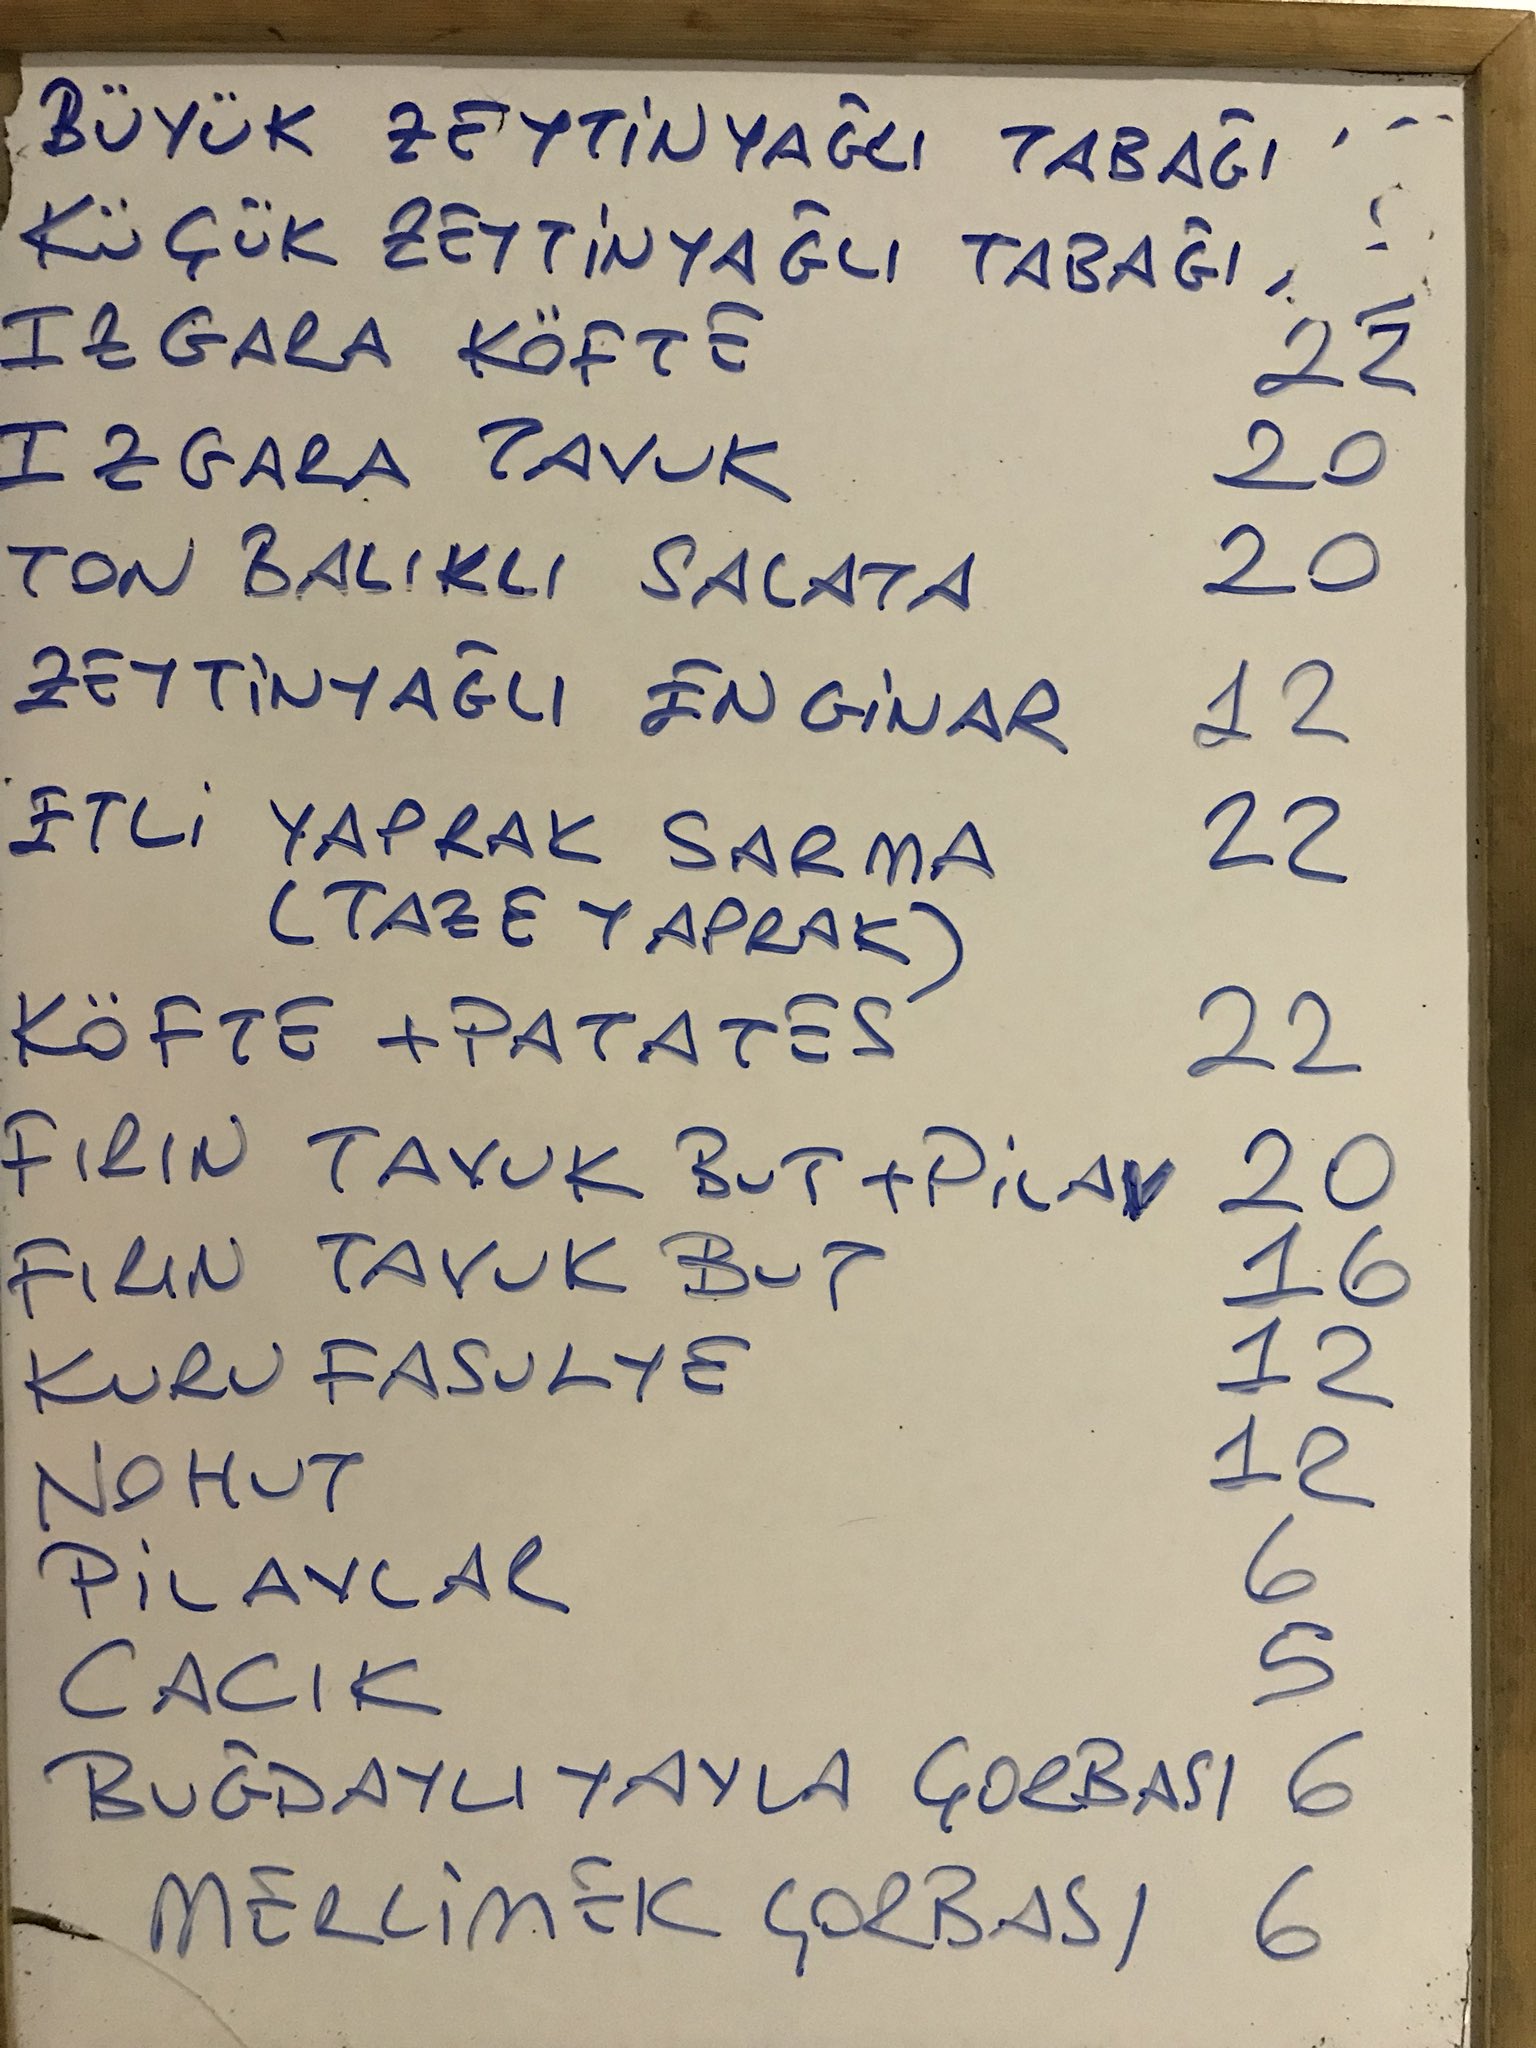 BÜYÜK ZEYTİNYAĞLI TABAĞI
KÜÇÜK ZEYTİNYAĞLI TABAĞI
IZGARA KÖFTE 22
IZGARA TAVUK 20
TON BALIKLI SALATA 20
ZEYTİNYAĞLI ENGİNAR 12
ETLİ YAPRAK SARMA 22
(TAZE YAPRAK)
KÖFTE +PATATES 22
FIRIN TAVUK BUT+PİLAV 20
FIRIN TAVUK BUT 16
KURU FASULYE 12
NOHUT 12
PİLAVLAR 6
CACIK 5
BUĞDAYLI YAYLA ÇORBASI 6
MERCİMEK ÇORBASI 6